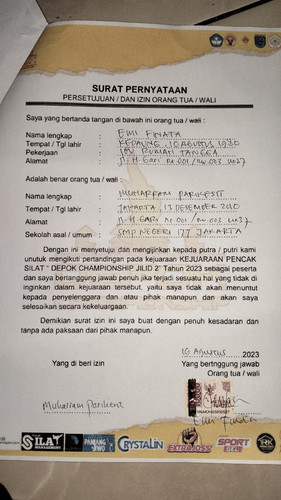 SURAT PERNYATAAN
PERSETUJUAN / DAN IZIN ORANG TUA / WALI
Saya yang bertanda tangan di bawah ini orang tua / wali :
Nama lengkap : EMI FINATA
Tempat / Tgl lahir : KEDAUNG, 10 AGUSTUS 1980
Pekerjaan : IBU RUMAH TANGGA
Alamat : Jl. H. Gari
Adalah benar orang tua / wali :
Nama lengkap : MUHARRAM PARIKESIT
Tempat / Tgl lahir : JAKARTA 13 DESEMBER 2010
Alamat : Jl. H GARI
Sekolah asal / umum : SMP NEGERI 177 JAKARTA
Dengan ini menyetujui dan mengijinkan kepada putra / putri kami
untuk mengikuti pertandingan pada kejuaraan KEJUARAAN PENCAK
SILAT " DEPOK CHAMPIONSHIP JILID 2" Tahun 2023 sebagai peserta
dan saya bertanggung jawab penuh jika terjadi sesuatu hal yang tidak di
inginkan dalam kejuaraan tersebut, yaitu saya tidak akan menuntut
kepada penyelenggara dan atau pihak manapun dan akan saya
selesaikan secara kekeluargaan.
Demikian surat izin ini saya buat dengan penuh kesadaran dan
tanpa ada paksaan dari pihak manapun.
10 Agustus 2023
Yang di beri izin
Yang bertnggung jawab
Orang tua / wali
Muharram Parikesit
Emi Finata
SILAT
MANAGEMENT
CRYSTALIN
EXTRAJOSS
SPORT